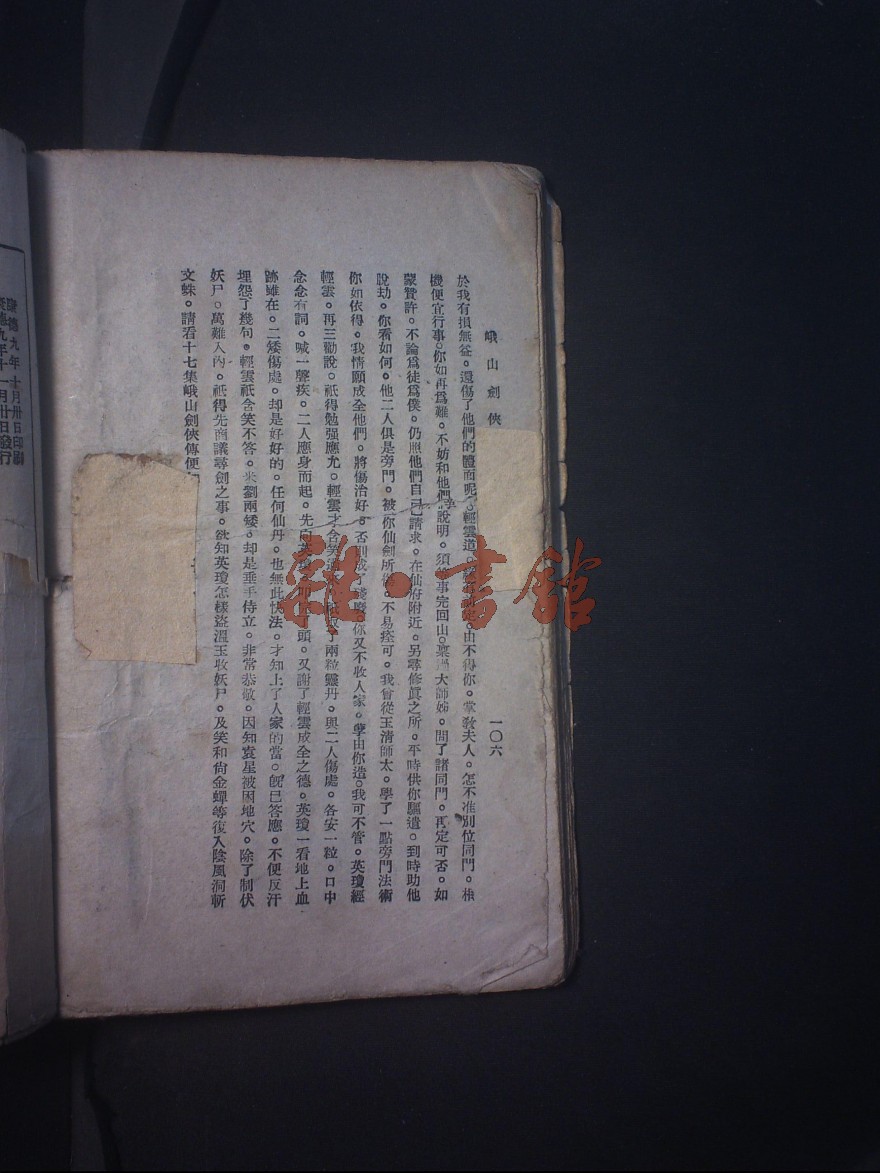 峨山劍俠
一〇六
於我有損無益。還傷了他們的體面呢。輕雲道。由不得你。掌敎夫人。怎不准別位同門。相
機便宜行事。你如再爲難。不妨和他們說明。須俟事完回山。稟過大師姊。問了諸同門。再定可否。如
蒙贊許。不論爲徒爲僕。仍照他們自己請求。在仙府附近。另尋修眞之所。平時供你驅遣。到時助他
說劫。你看如何。他二人俱是旁門。被你仙劍所傷。不易痊可。我曾從玉清師太。學了一點旁門法術
你如依得。我情願成全他們。將傷治好。否則成了殘廢。你又不收人家。孽由你造。我可不管。英瓊經
輕雲。再三勸說。祇得勉强應允。輕雲才含笑了兩粒靈丹。與二人傷處。各安一粒。口中
念念有詞。喊一聲疾。二人應身而起。先向英瓊叩了頭。又謝了輕雲成全之德。英瓊一看地上血
跡雖在。二矮傷處。却是好好的。任何仙丹。也無此快法。才知上了人家的當。旣已答應。不便反汗
埋怨了幾句。輕雲祇含笑不答。米劉兩矮。却是垂手侍立。非常恭敬。因知袁星被困地穴。除了制伏
妖尸。萬難人內。祇得先商議尋劍之事。欲知英瓊怎樣盜溫玉收妖尸。及笑和尙金蟬等復入陰風洞斬
文蛛。請看十七集峨山劍俠傳便
康德九年十月卅日印刷
康德九年十一月卅日發行
雜·書館